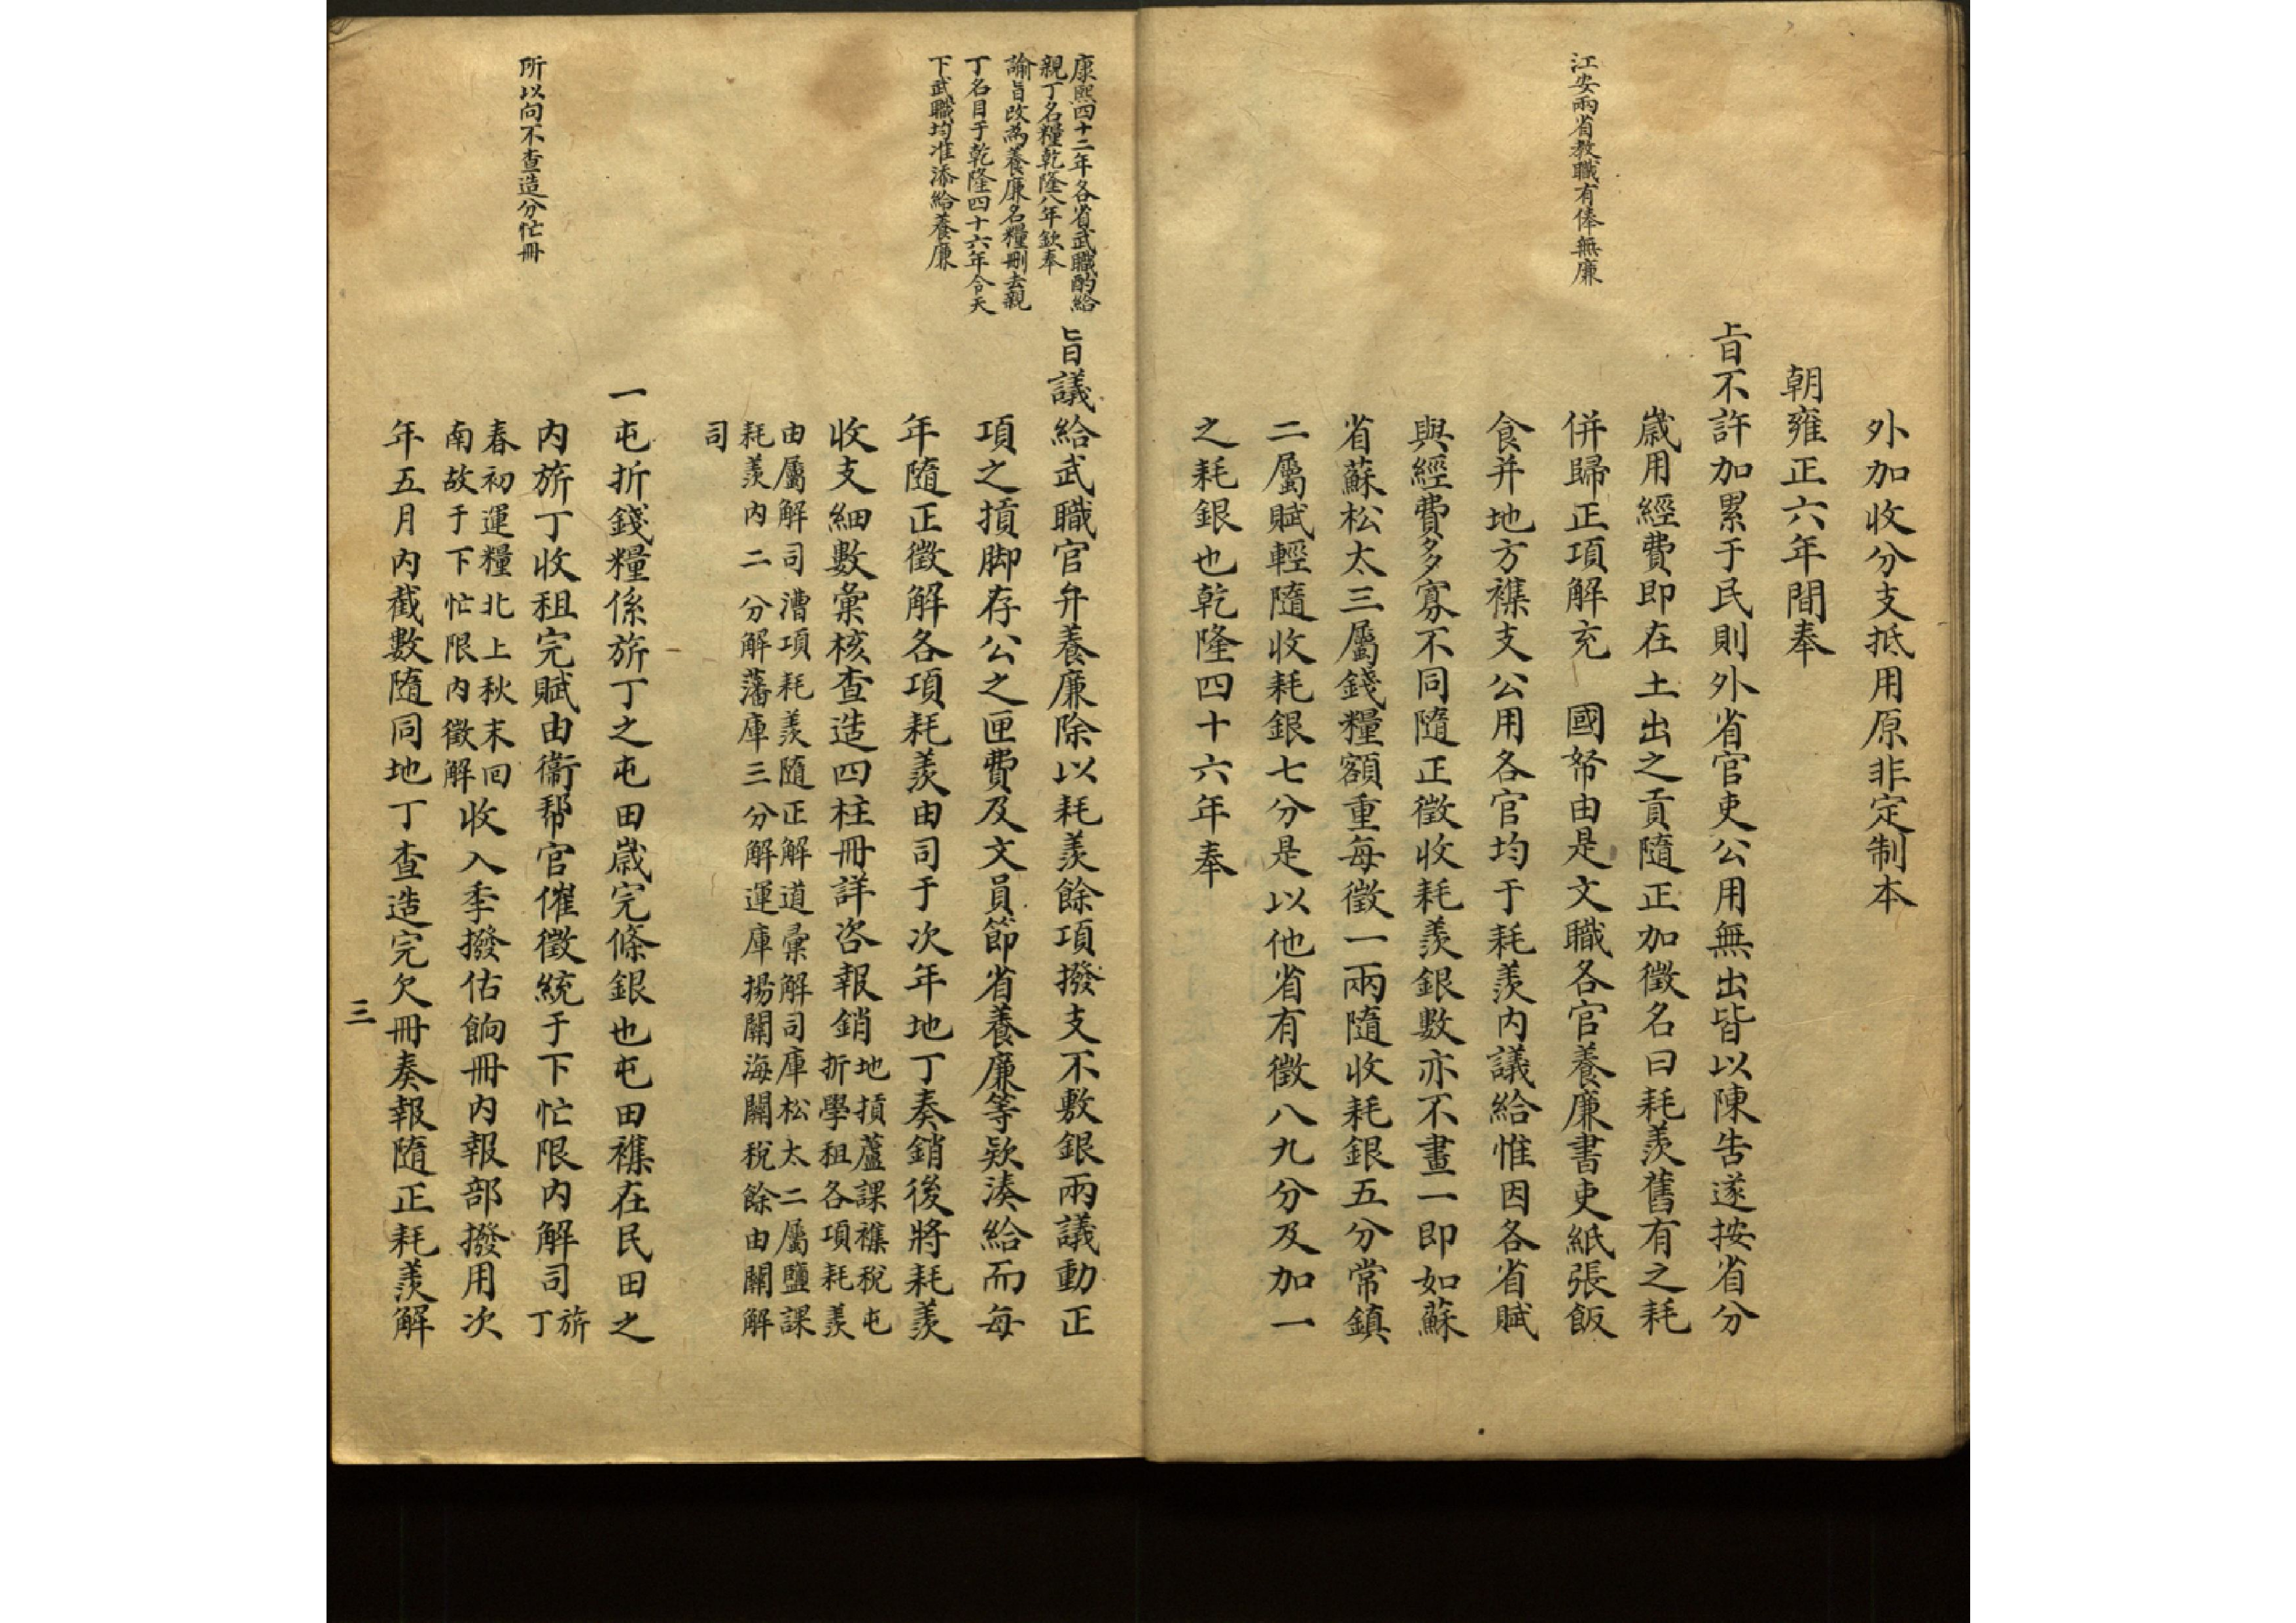 江安兩省教職有俸無廉
外加收分支抵用原非定制本
朝雍正六年間奉
旨不許加累于民則外省官吏公用無出皆以陳告遂按省分
歲用經費即在土出之貢隨正加徵名曰耗羨舊有之耗
併歸正項解充　國帑由是文職各官養廉書吏紙張飯
食并地方襍支公用各官均于耗羨內議給惟因各省賦
與經費多寡不同隨正徵收耗羨銀數亦不畫一即如蘇
省蘇松太三屬錢糧額重每徵一兩隨收耗銀五分常鎮
二屬賦輕隨收耗銀七分是以他省有徵八九分及加一
之耗銀也乾隆四十六年奉
康熙四十二年各省武職酌給
親丁名糧乾隆八年欽奉
諭旨改為養廉名糧刪去親
丁名目于乾隆四十六年合天
下武職均准添給養廉
旨議給武職官弁養廉除以耗羨餘項撥支不敷銀兩議動正
項之摃脚存公之匣費及文員節省養廉等欵湊給而每
年隨正徵解各項耗羨由司于次年地丁奏銷後將耗羨
收支細數彙核查造四柱冊詳咨報銷地摃蘆課襍稅屯
折學租各項耗羨
由屬解司漕項耗羨隨正解道彙解司庫松太二屬鹽課
耗羨內二分解藩庫三分解運庫揚關海關稅餘由關解
司
一屯折錢糧係旂丁之屯田歲完條銀也屯田襍在民田之
所以向不查造分忙冊
內旂丁收租完賦由衞帮官催徵統于下忙限內解司旂
丁
春初運糧北上秋末回
南故于下忙限內徵解收入季撥估餉冊內報部撥用次
年五月內截數隨同地丁查造完欠冊奏報隨正耗羨解
三